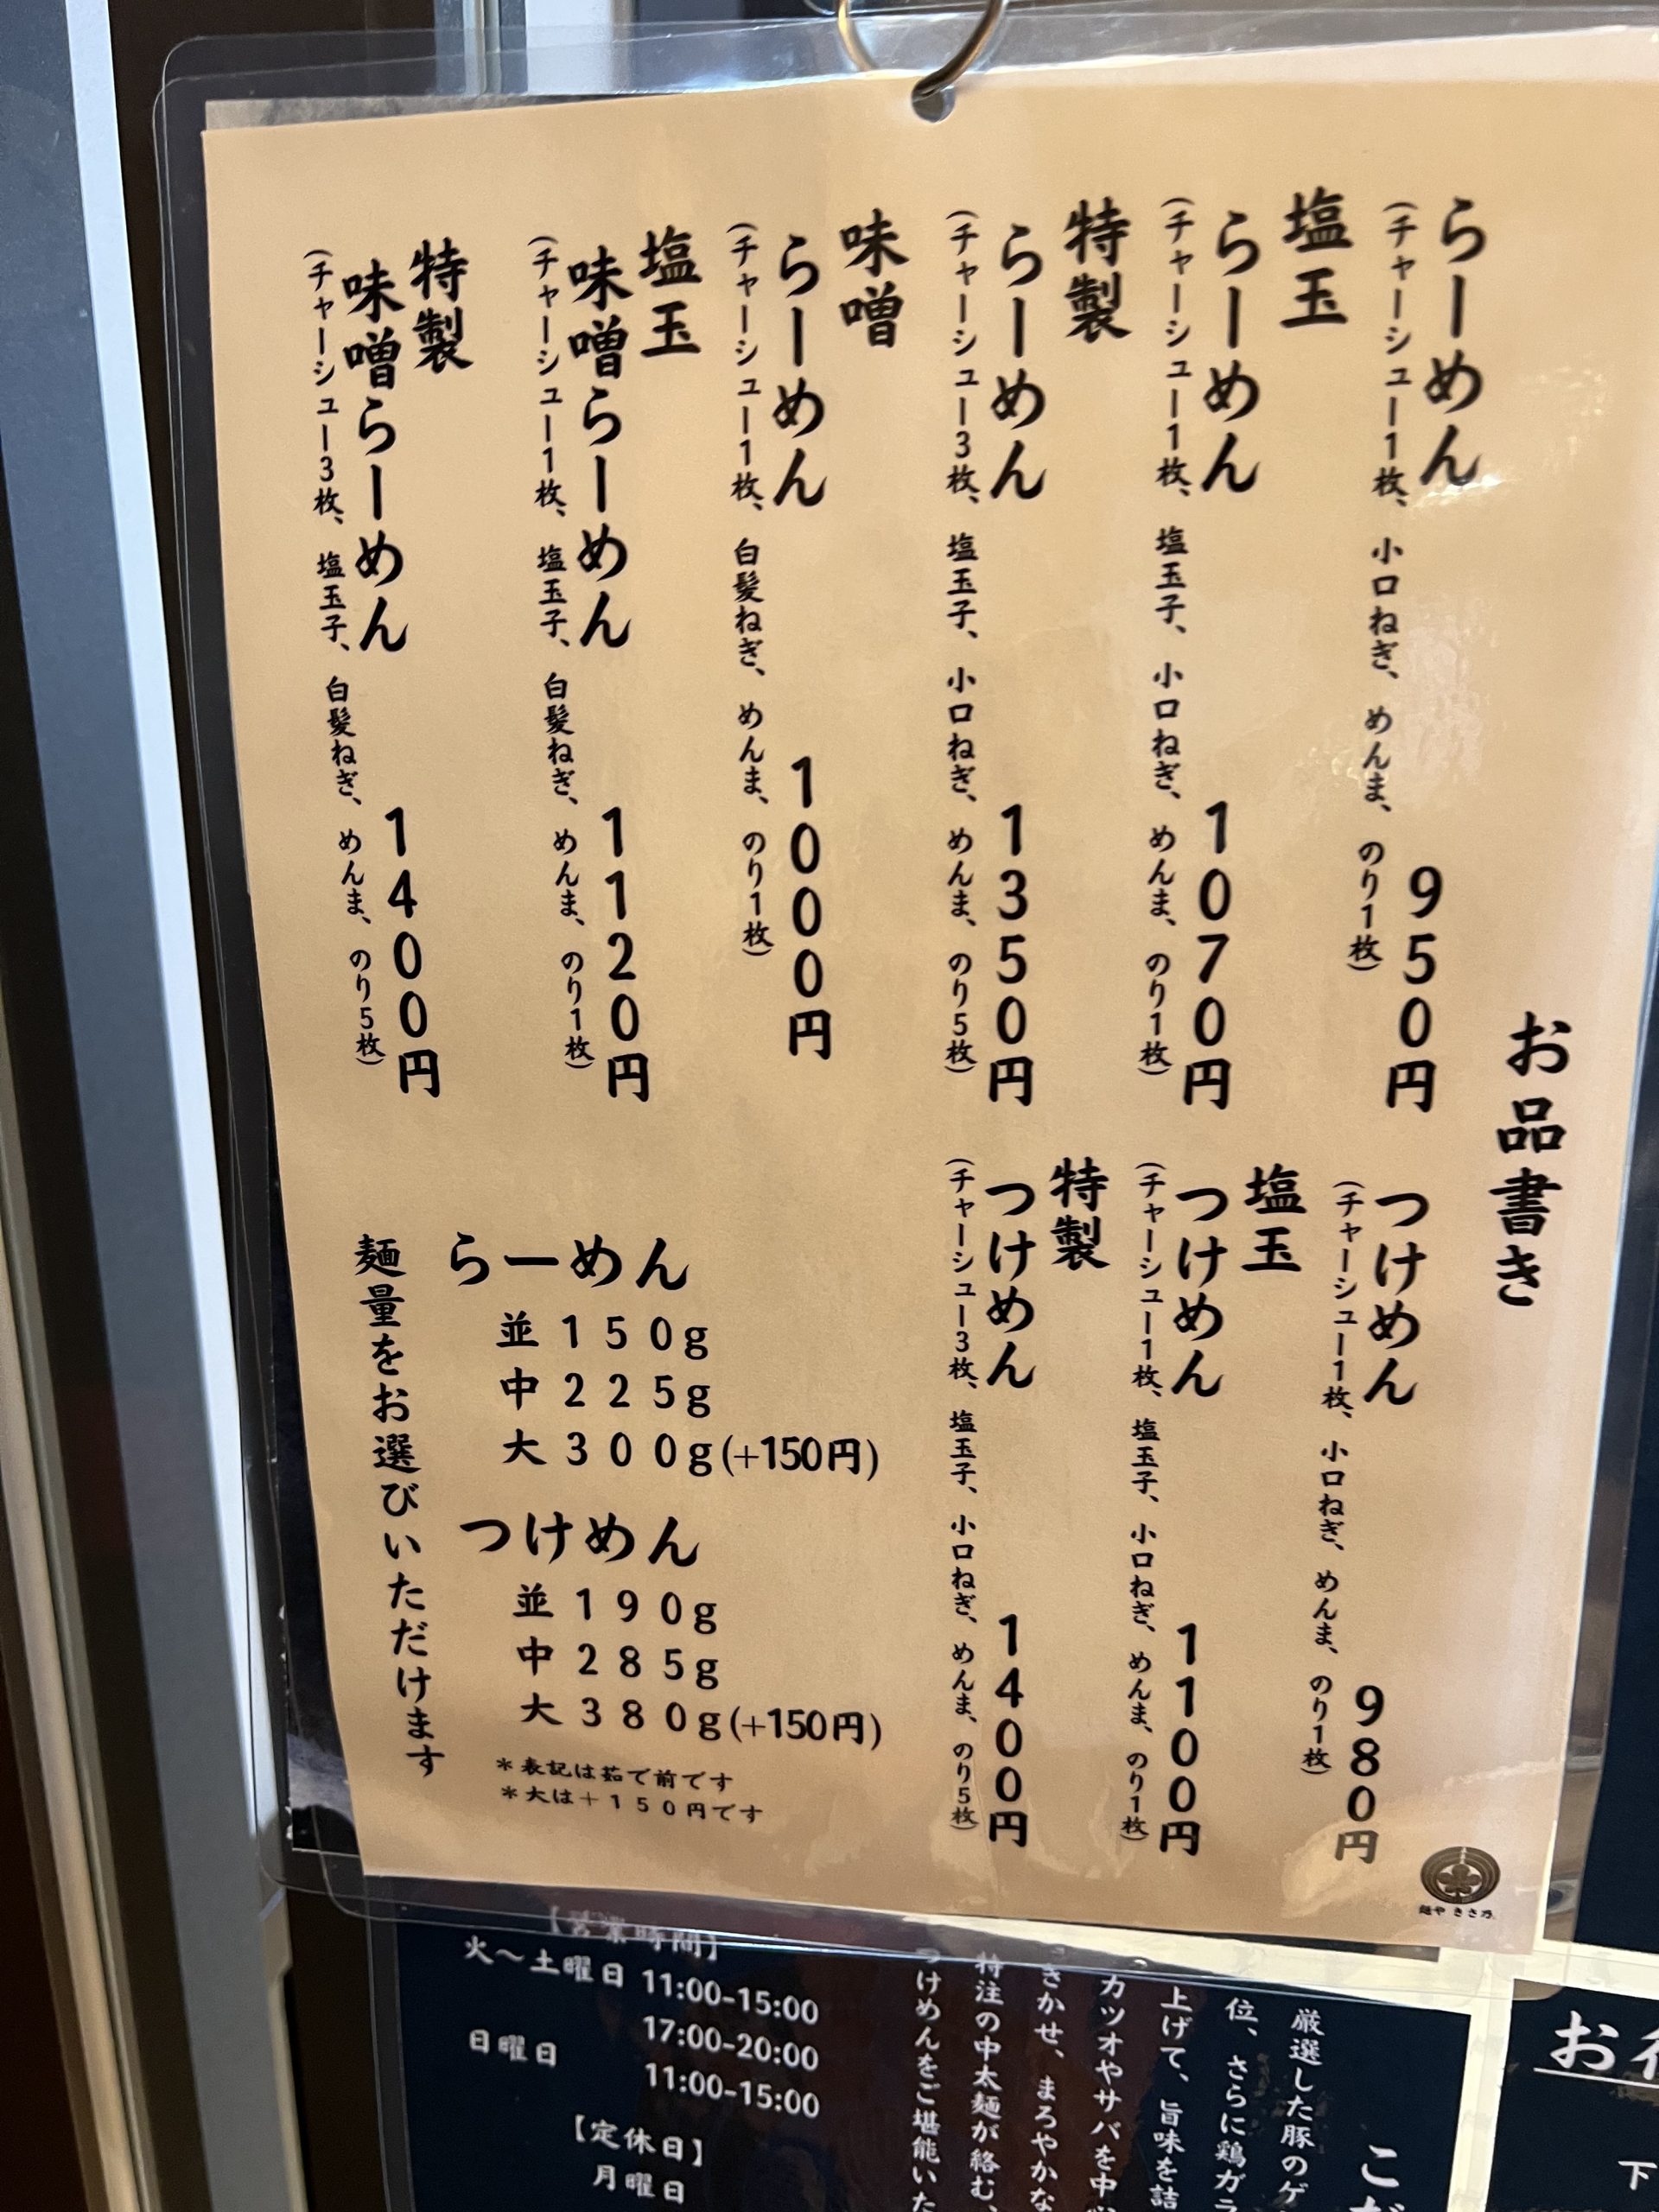 お品書き
らーめん 950円
(チャーシュー1枚、小口ねぎ、めんま、のり1枚)
塩玉
らーめん 1070円
(チャーシュー1枚、塩玉子、小口ねぎ、めんま、のり1枚)
特製
らーめん 1350円
(チャーシュー3枚、塩玉子、小口ねぎ、めんま、のり5枚)
味噌
らーめん 1000円
(チャーシュー1枚、白髪ねぎ、めんま、のり1枚)
塩玉
味噌らーめん 1120円
(チャーシュー1枚、塩玉子、白髪ねぎ、めんま、のり1枚)
特製
味噌らーめん 1400円
(チャーシュー3枚、塩玉子、白髪ねぎ、めんま、のり5枚)
つけめん 980円
(チャーシュー1枚、小口ねぎ、めんま、のり1枚)
塩玉
つけめん 1100円
(チャーシュー1枚、塩玉子、小口ねぎ、めんま、のり1枚)
特製
つけめん 1400円
(チャーシュー3枚、塩玉子、小口ねぎ、めんま、のり5枚)
らーめん
並 150g
中 225g
大 300g(+150円)
つけめん
並 190g
中 285g
大 380g(+150円)
*表記は茹で前です
*大は+150円です
麺量をお選びいただけます
麺や きさ乃
お
下
こ
厳選した豚のゲ
位、さらに鶏ガラ
上げて、旨味を詰
カツオやサバを中
きかせ、まろやかな
特注の中太麺が絡む、
つけめんをご堪能いた
【営業時間】
火～土曜日 11:00-15:00
17:00-20:00
日曜日 11:00-15:00
【定休日】
月曜日